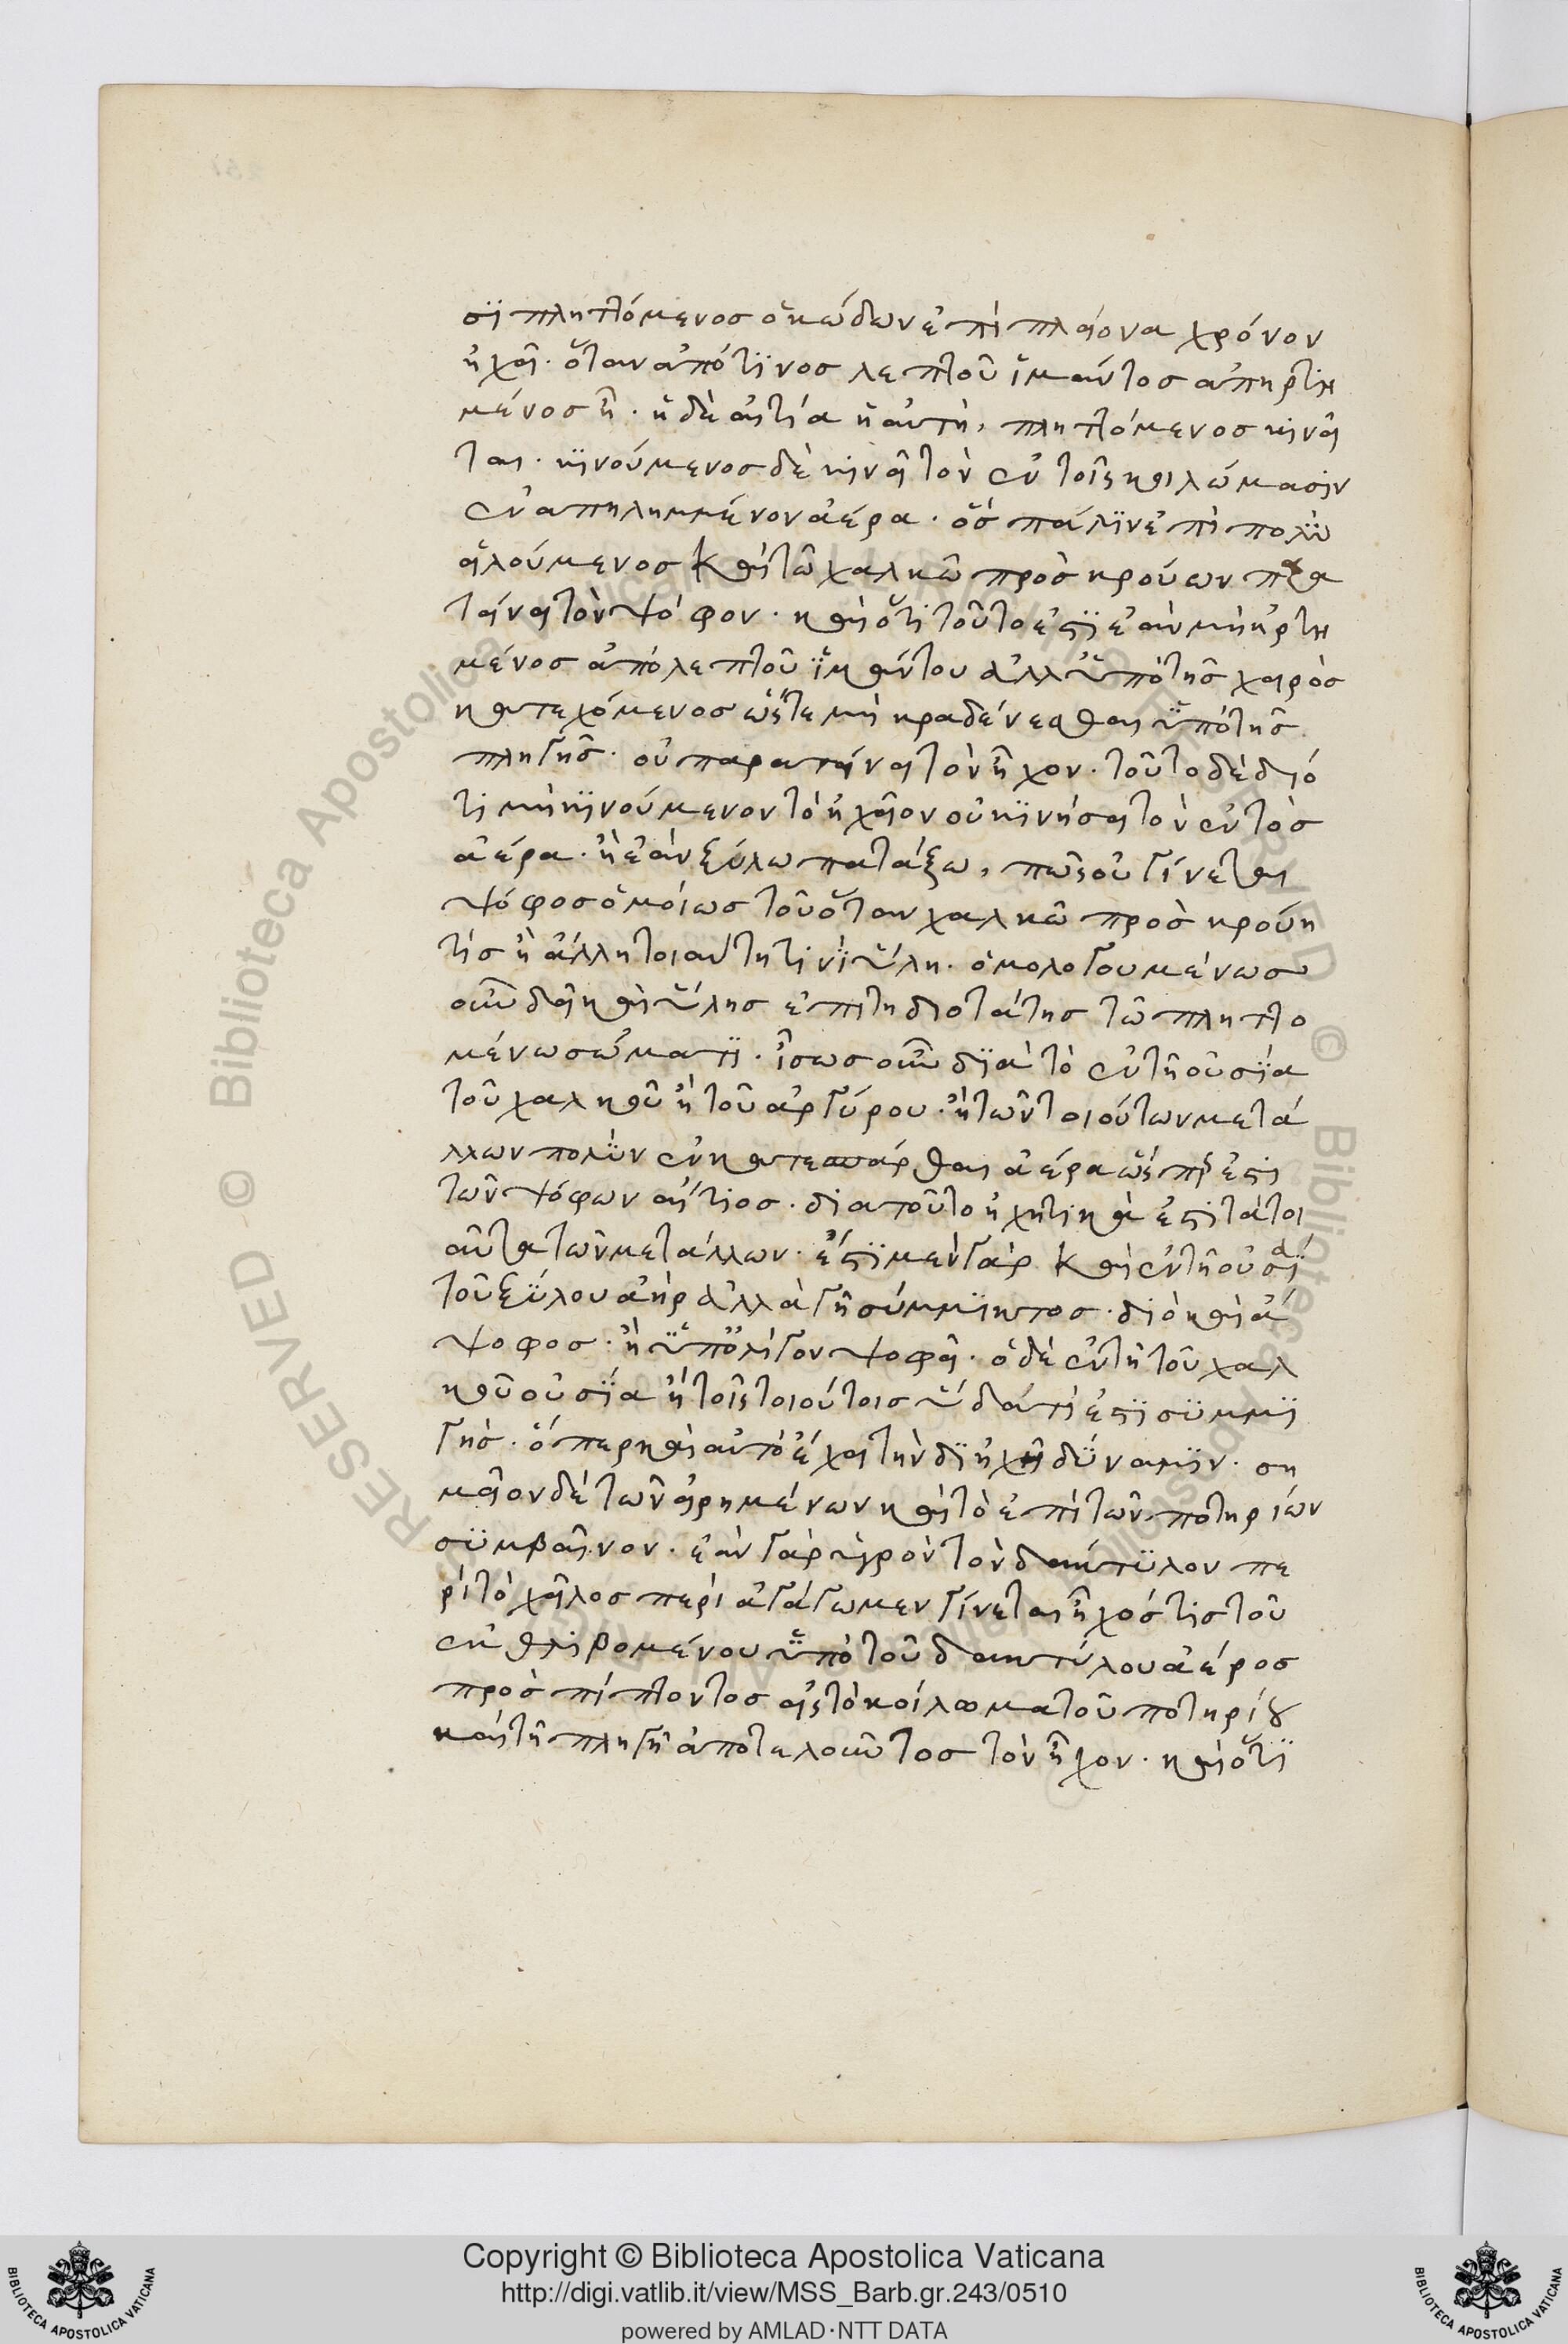 σϊ πληττόμενος ὁ κώδων ἐπὶ πλείονα χρόνον
ἠχεῖ· ὅταν ἀπό τϊνος λεπτοῦ ἱμάντος ἀπηρτη
μένος ἦ· ἡ δὲ αἰτία ἡ αὐτὴ, πληττόμενος κινεῖ
ται· κϊνούμενος δὲ κινεῖ τὸν ἐν τοῖς κοιλώμασιν
ἐναπηλημμένον ἀέρα· ὃς πάλϊν ἐπὶ πολὺ
εἱλούμενος καὶ τῶ χαλκῶ προσκρούων παρα
τείνει τὸν ψόφον· καὶ ὅτι τοῦτο ἐστϊ ἐὰν μὴ ἠρτη
μένος ἀπὸ λεπτοῦ ϊμάντου ἀλλ' ὑπὸ τῆς χειρὸς
κατεχόμενος ὥστε μὴ κραδένεσθαι ὑπὸ τῆς
πληγῆς· οὐ παρατείνει τὸν ἦχον· τοῦτο δὲ διό
τι μὴ κϊνούμενον τὸ ἠχεῖον οὐ κϊνήσει τὸν ἐντὸς
ἀέρα· ἢ ἐὰν ξύλω πατάξω, πῶς οὐ γίνεται
ψόφος ὁμοίως τοῦ ὅταν χαλκῶ προσκρούη
τίς ἢ ἄλλη τοιαύτη τινϊ ὕλη· ὁμολογουμένως
οὖν δεῖ καὶ ὕλης ἐπιτηδιοτάτης τῶ πληττο
μένω σώματϊ· ἴσως οὖν δϊὰ τὸ ἐν τῆ οὐσϊα
τοῦ χαλκοῦ ἢ τοῦ ἀργύρου· ἢ τῶν τοιούτων μετά
λλων πολὺν ἐγκατεσπάρθαι ἀέρα ὥσπερ ἐστι
τῶν ψόφων αἴτιος· διατοῦτο ἠχητικὰ ἐστι τὰ τοι
αῦτα τῶν μετάλλων· ἔστϊ μὲν γὰρ καὶ ἐν τῆ οὐσίᾳ
τοῦ ξϋλου ἀὴρ ἀλλὰ γῆ σύμμϊκτος· διὸ καὶ ἄ
ψοφος· ἢ ὑπ' ὀλίγον ψοφεῖ· ὁ δὲ ἐν τῆ τοῦ χαλ
κοῦ οὐσϊα ἢ τοῖς τοιούτοις ὕδατί ἐστϊ σϋμμϊ
γής· ὅπερ καὶ αὐτὸ ἔχει τὴν δϊηχῆ δϋναμϊν· ση
μεῖον δὲ τῶν εἰρημένων καὶ τὸ ἐπὶ τῶν ποτηρίων
σϋμβαῖνον· ἐὰν γὰρ ὑγρὸν τὸν δάκτϋλον πε
ρὶ τὸ χεῖλος περὶ ἀγάγωμεν γίνεται ἦχός τις τοῦ
ἐκθλιβομένου ὑπὸ τοῦ δακτύλου ἀέρος
προσπίπτοντος εἰς τὸ κοίλωμα τοῦ ποτηρίου
καὶ τῆ πληγῆ ἀποτελοῦντος τὸν ἦχον· καὶ ὅτϊ
Copyright © Biblioteca Apostolica Vaticana
http://digi.vatlib.it/view/MSS_Barb.gr.243/0510
powered by AMLAD·NTT DATA